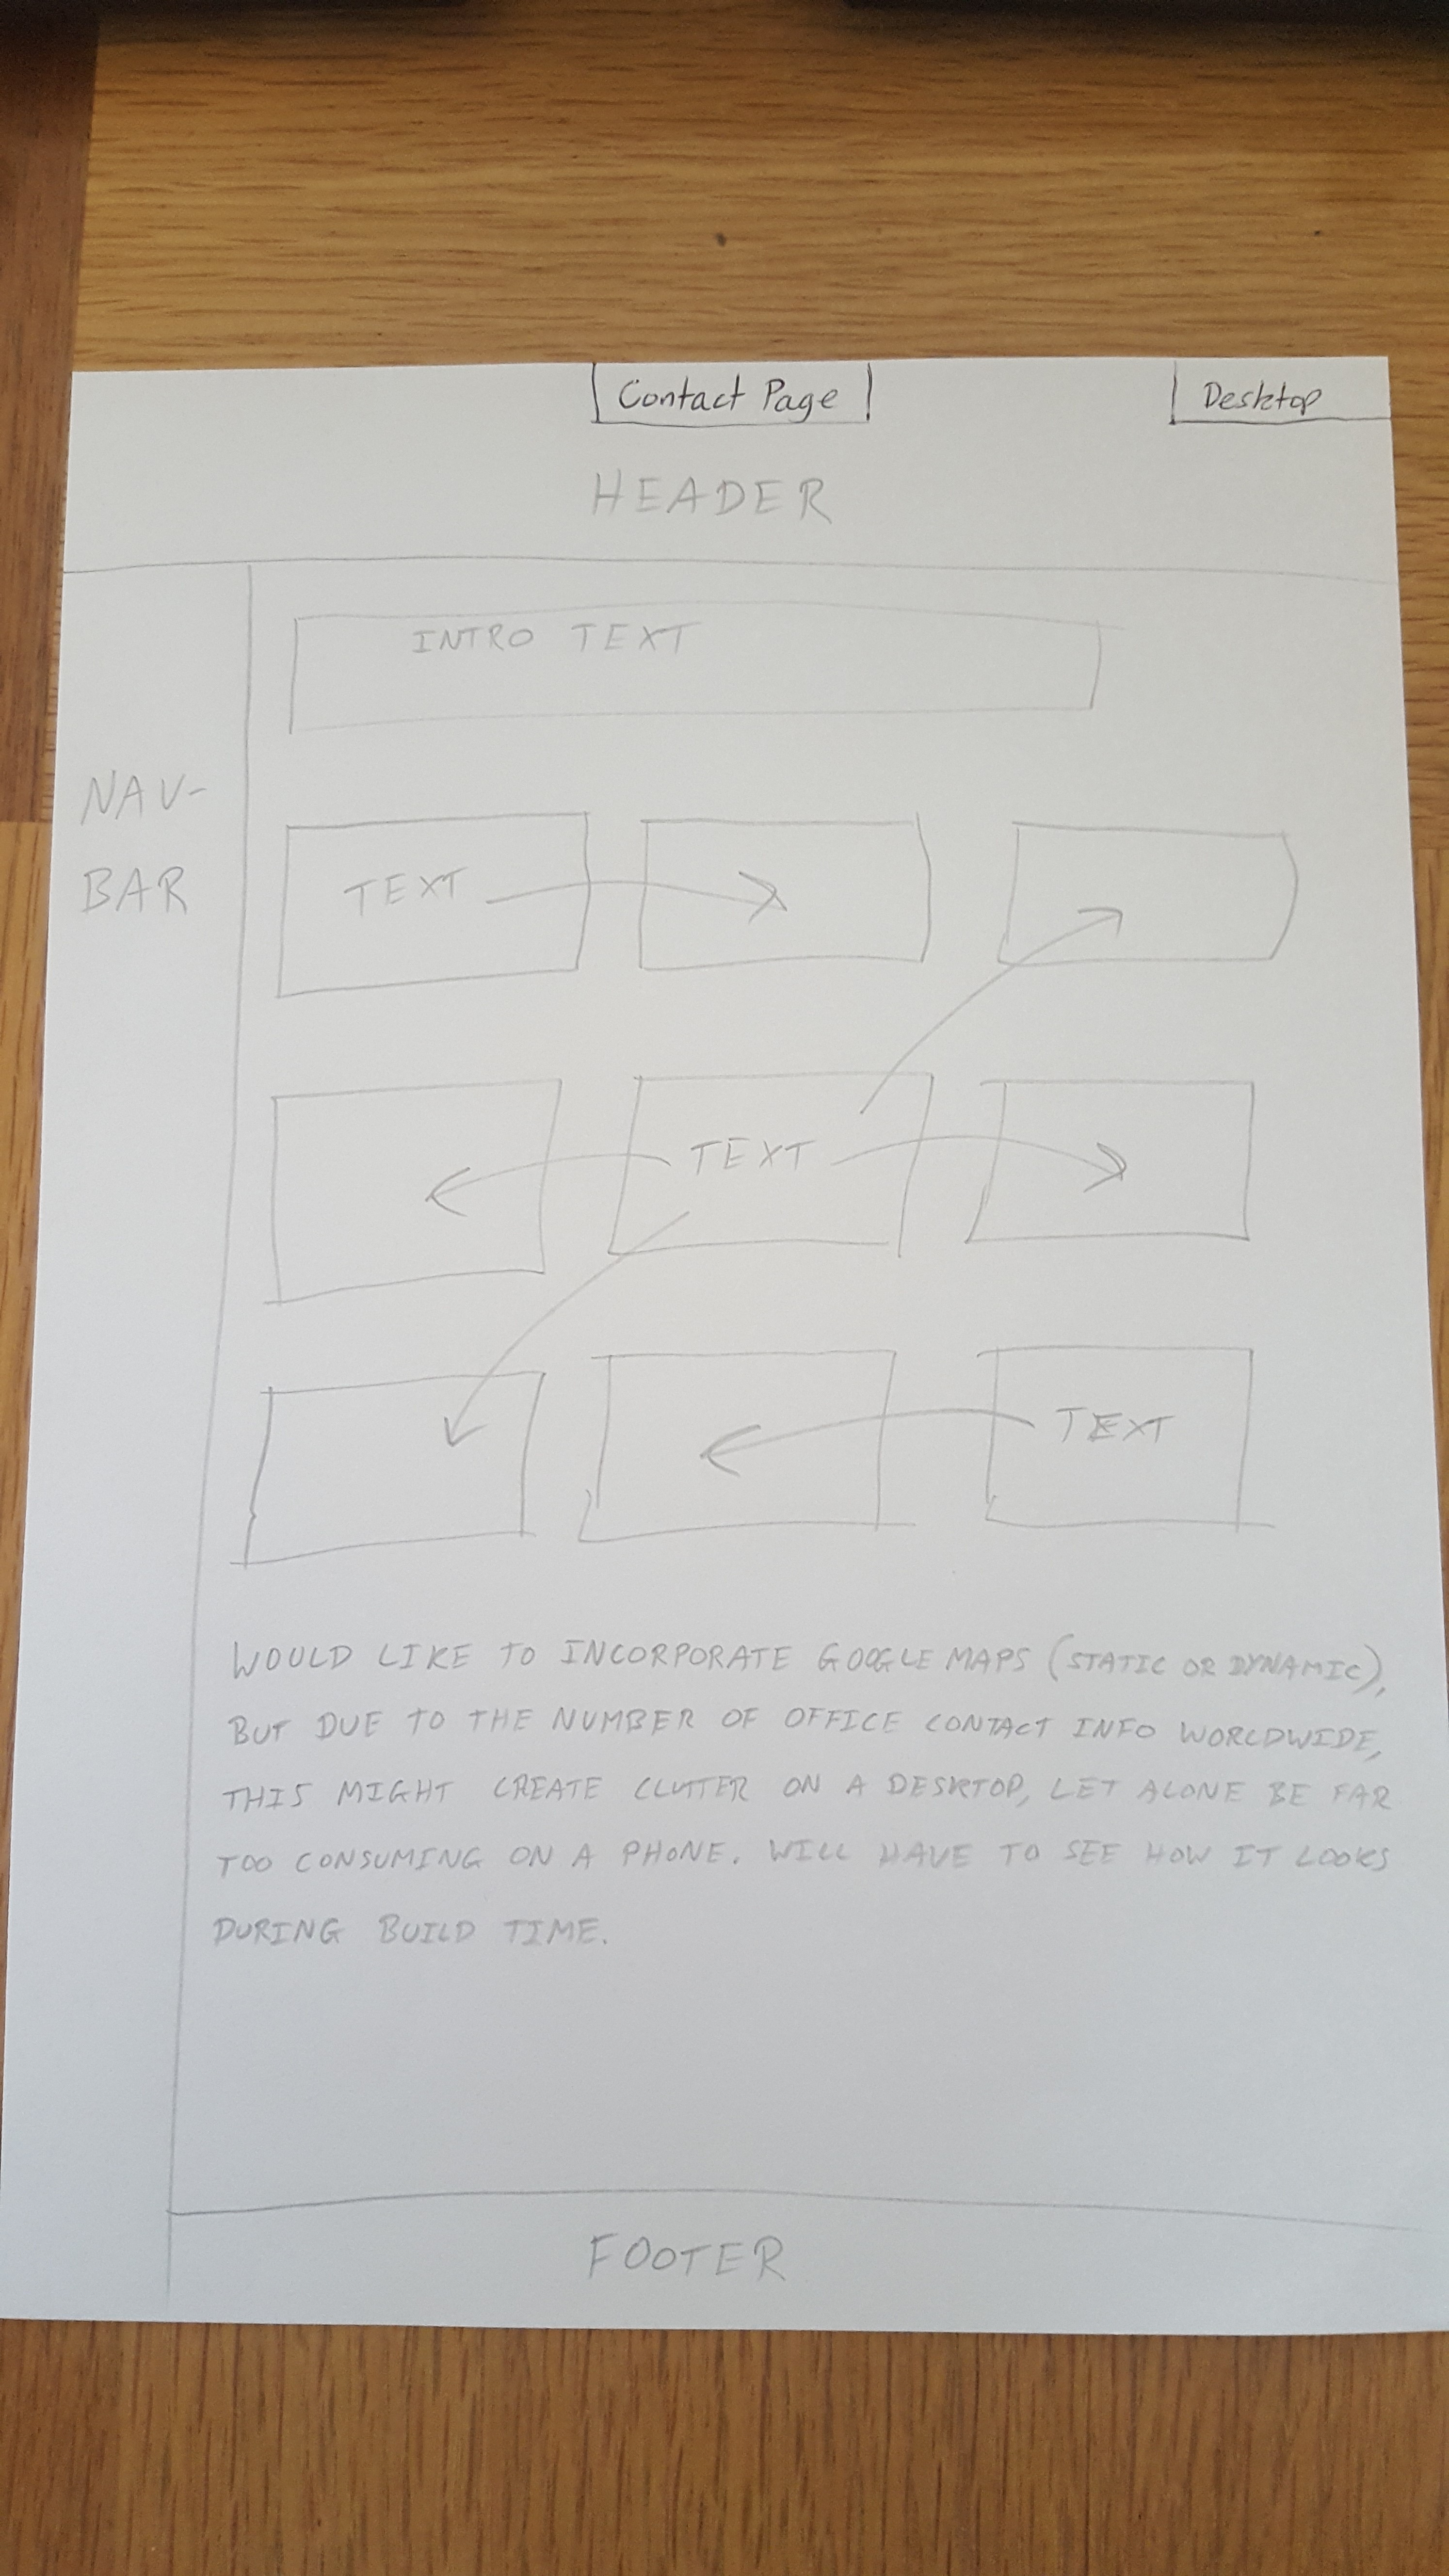 Contact Page
Desktop
HEADER
INTRO TEXT
NAV-
BAR
TEXT
TEXT
TEXT
WOULD LIKE TO INCORPORATE GOOGLE MAPS (STATIC OR DYNAMIC),
BUT DUE TO THE NUMBER OF OFFICE CONTACT INFO WORLDWIDE,
THIS MIGHT CREATE CLUTTER ON A DESKTOP, LET ALONE BE FAR
TOO CONSUMING ON A PHONE. WILL HAVE TO SEE HOW IT LOOKS
DURING BUILD TIME.
FOOTER